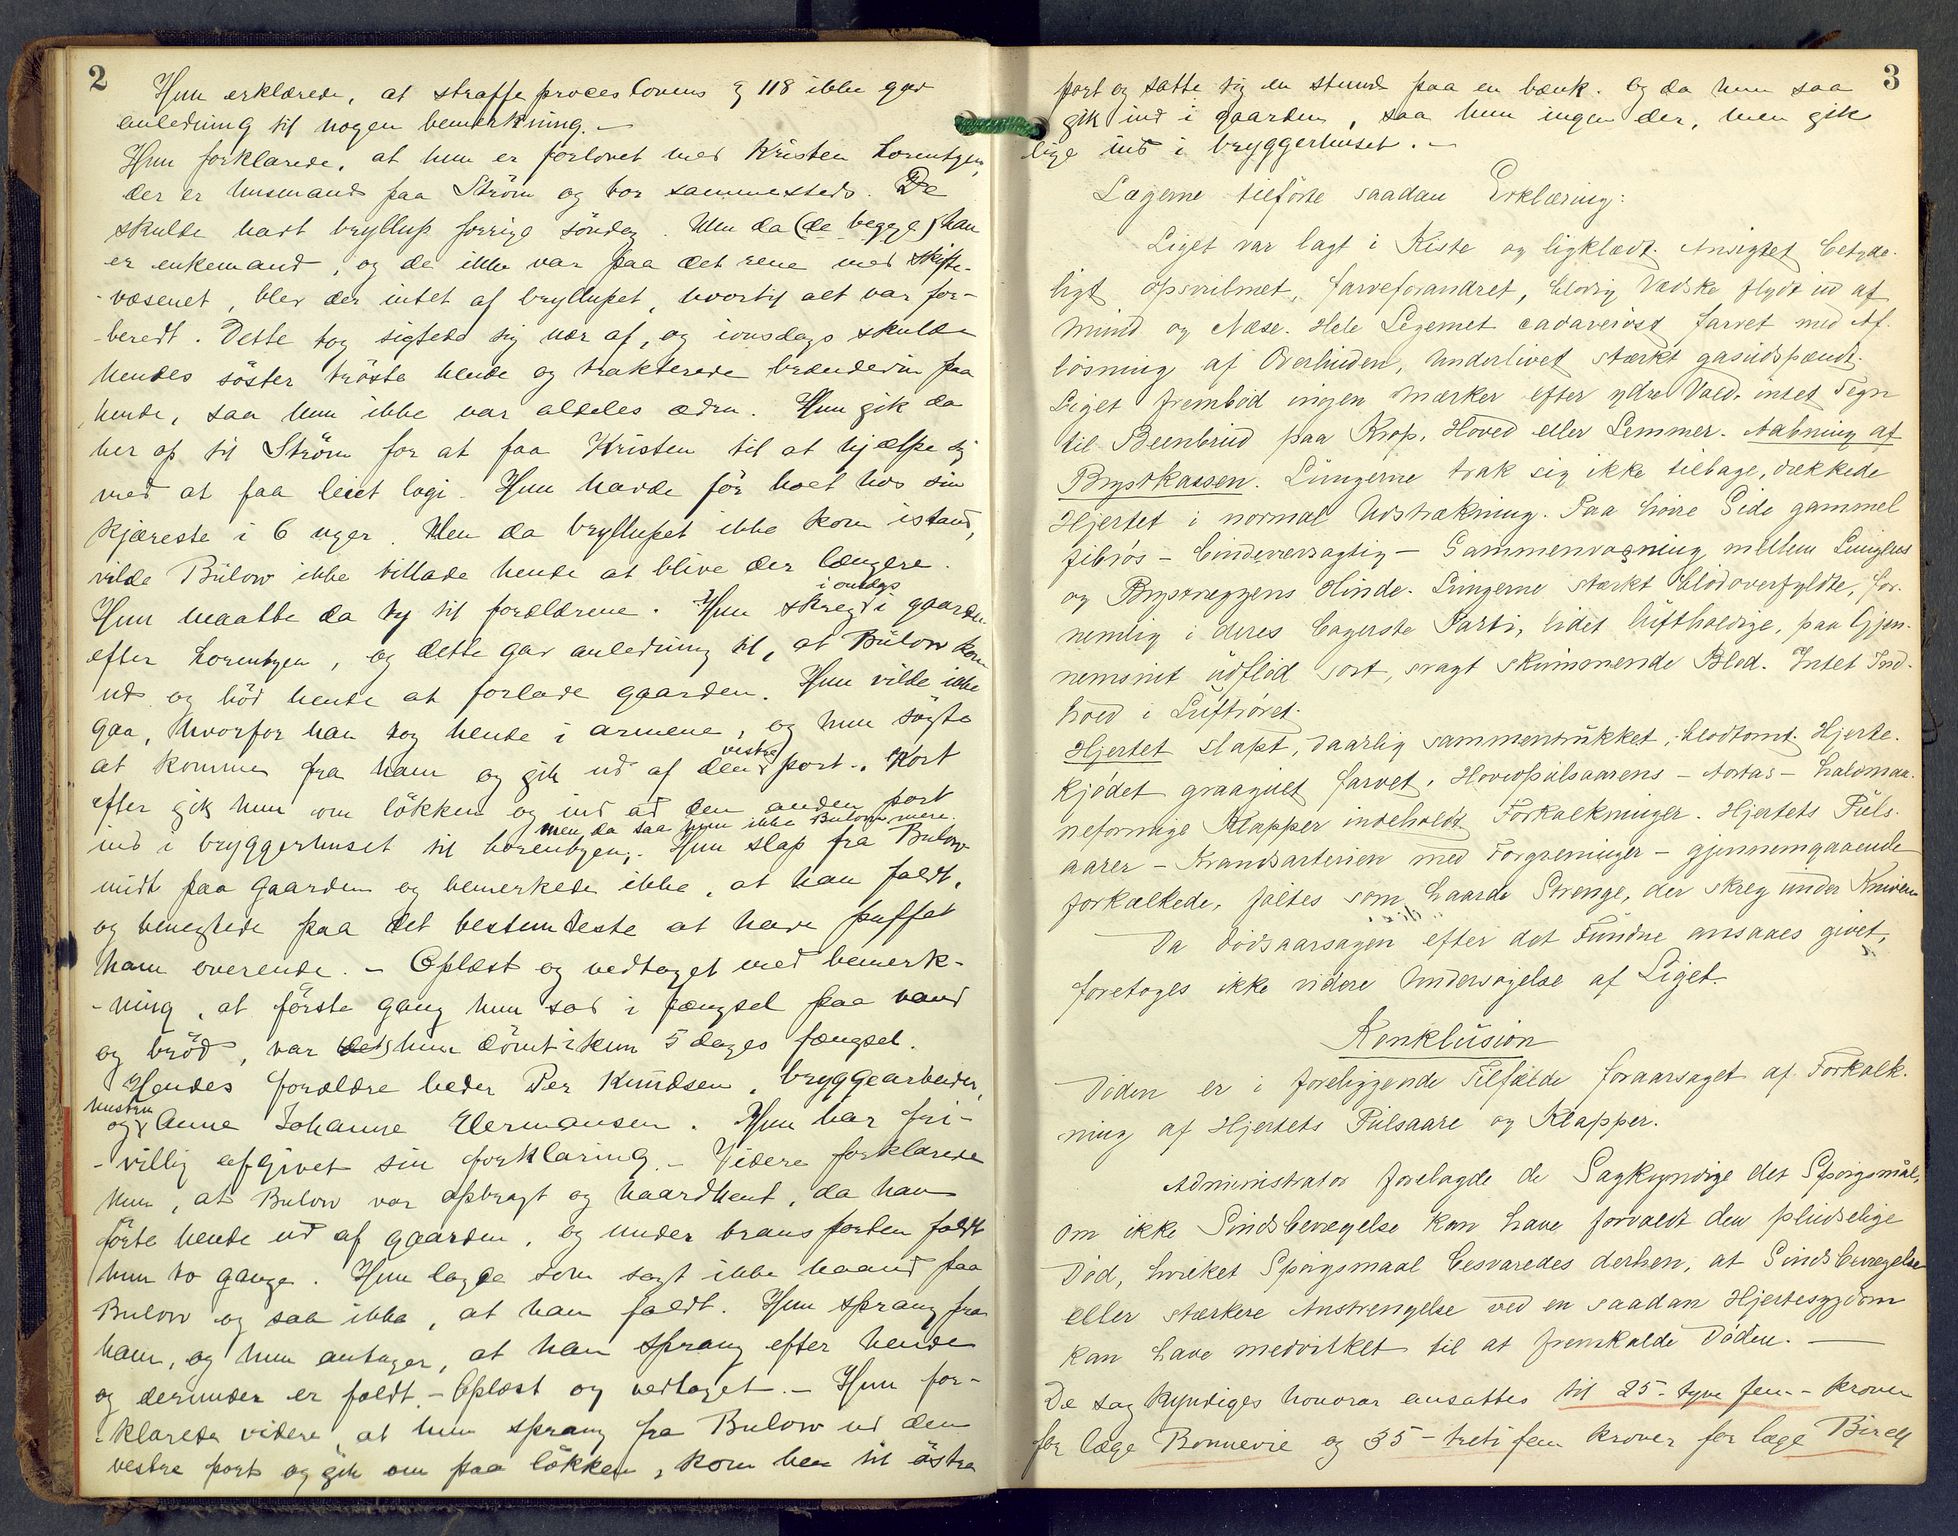 2
Hun erklærede, at straffeproceslovens § 118 ikke gav
anledning til nogen bemerkning. —
Hun forklarede, at hun er forlovet med Kristen Lorentzen,
der er husmand paa Strøm og bor sammesteds. De
skulde havt bryllup forrige söndag. Men da (de begge) han
er enkemand, og da ikke var paa det rene med skifte-
-væsenet, blev der intet af bryllupet, hvortil alt var for-
-beredt. Dette tog sigtede sig nær af, og onsdags skulde
hendes söster tröste hende og trakterede brændevin paa
hende, saa hun ikke var aldeles ædru. Hun gik da
her op til Ström for at faa Kristen til at hjælpe sig
med at faa leiet logi. Hun havde för boet hos sin
kjæreste i 6 uger. Men da bryllupet ikke kom istand,
vilde Bülow ikke tillade hende at blive der længere.
Hun maatte da ty til forældrene. Hun skreg i onsdags i gaarden
efter Lorentzen, og dette gav anledning til, at Bülow kom
ud og böd hende at forlade gaarden. Hun vilde ikke
gaa, hvorfor han tog hende i armene, og hun sögte
at komme fra ham og gik ud af den vestre port. Kort
efter gik hun om lökken og ind ad den anden port
men da saa hun ikke Bulow mere.
ind i bryggerhuset til Lorentzen, Hun slap fra Bulow
midt paa gaarden og bemerkede ikke, at han faldt,
og benegtede paa det bestemteste at have puffet
ham overende. — Oplæst og vedtaget med bemerk-
-ning, at förste gang hun sad i fængsel paa vand
og bröd, var (det) hun dömt i kun 5 dages fængsel.
Hendes forældre heder Per Knudsen, bryggearbeider,
og hustru Anne Johanne Hermansen. Hun har fri-
-villig afgivet sin forklaring. — Videre forklarede
hun, at Bulow var opbragt og haardhent, da han
förte hende ud af gaarden, og under transporten faldt
hun to gange. Hun lagde som sagt ikke haand paa
Bulow og saa ikke, at han faldt. Hun sprang fra
ham, og hun antager, at han sprang efter hende
og derunder er faldt. — Oplæst og vedtaget. — Hun for-
-klarede videre, at hun sprang fra Bulow ud den
vestre port og gik om paa lökken, kom hen til östre
3
port og satte sig en stund paa en bænk. Og da hun saa
gik ind i gaarden, saa hun ingen der, men gik
lige ind i bryggerhuset. —
Lægerne tilførte saadan Erklæring:
Liget var lagt i Kiste og ligklædt. Ansigtet betyde-
ligt opsvulmet, farveforandret, blodig Vædske flydt ud af
Mund og Næse. Hele Legemet cadaverøst farvet med Af-
løsning af Overhuden, Underlivet stærkt gasudspændt.
Liget frembød ingen Mærker efter ydre Vold, intet Tegn
til Beenbrud paa Krop, Hoved eller Lemmer. Aabning af
Brystkassen. Lungerne trak sig ikke tilbage, dækkede
Hjertet i normal Udstrækning. Paa høire Side gammel
fibrøs — bindevævsagtig — Sammenvoxning mellem Lungens
og Brystvæggens Hinde. Lungerne stærkt blodoverfyldte, for-
nemlig i deres bagerste Parti, lidet luftholdige, paa Gjen-
nemsnit udflød sort, svagt skummende Blod. Intet Ind-
hold i Luftrøret.
Hjertet slapt, daarlig sammentrukket, blodtomt. Hjerte-
kjødet graagult farvet. Hovedpulsaarens — Aortas — halvmaa-
neformige Klapper indeholdt Forkalkninger. Hjertets Puls-
aarer — Kransarterien med Forgreninger — gjennemgaaende
forkalkede, føltes som haarde Strenge, der skreg under Kniven.
Da Dødsaarsagen efter det Fundne ansaaes givet,
foretoges ikke videre Undersøgelse af Liget.
Konklusion
Døden er i foreliggende Tilfælde foraarsaget af Forkalk-
ning af Hjertets Pulsaare og Klapper.
Administrator forelagde de Sagkyndige det Spørgsmål,
om ikke Sindsbevægelse kan have forvoldt den pludselige
Død, hvilket Spørgsmaal besvaredes derhen, at Sindsbevægelse
eller stærkere Anstrengelse ved en saadan Hjertesygdom
kan have medvirket til at fremkalde Døden. —
De sagkyndiges honorar ansattes til 25 - tyve fem - kroner
for læge Bonnevie og 35 - treti fem kroner for læge Birch